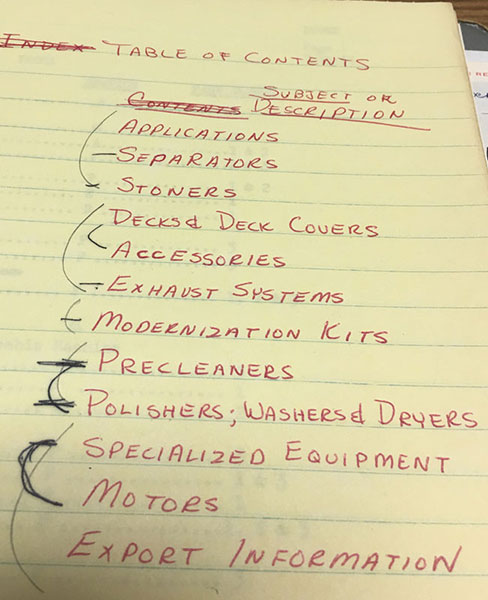 Index Table of Contents
Contents Subject or
Description
Applications
Separators
Stoners
Decks & Deck Covers
Accessories
Exhaust Systems
Modernization Kits
Precleaners
Polishers; Washers & Dryers
Specialized Equipment
Motors
Export Information